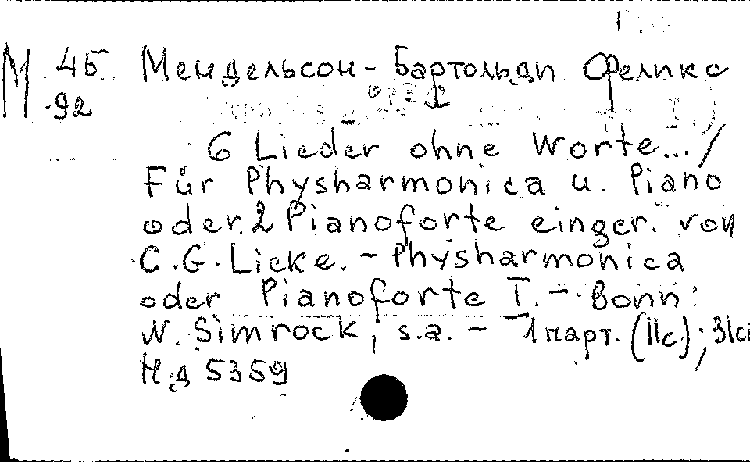 М 45 Мендельсон-Бартольди Феликс
92
6 Lieder ohne Worte... /
Für Physharmonica u. Piano
oder 2 Pianoforte einger. von
C.G. Licke. - Physharmonica
oder Pianoforte I. - Bonn:
N. Simrock, s.a. - 1 парт. (11с.); 31см
Н.д 5359